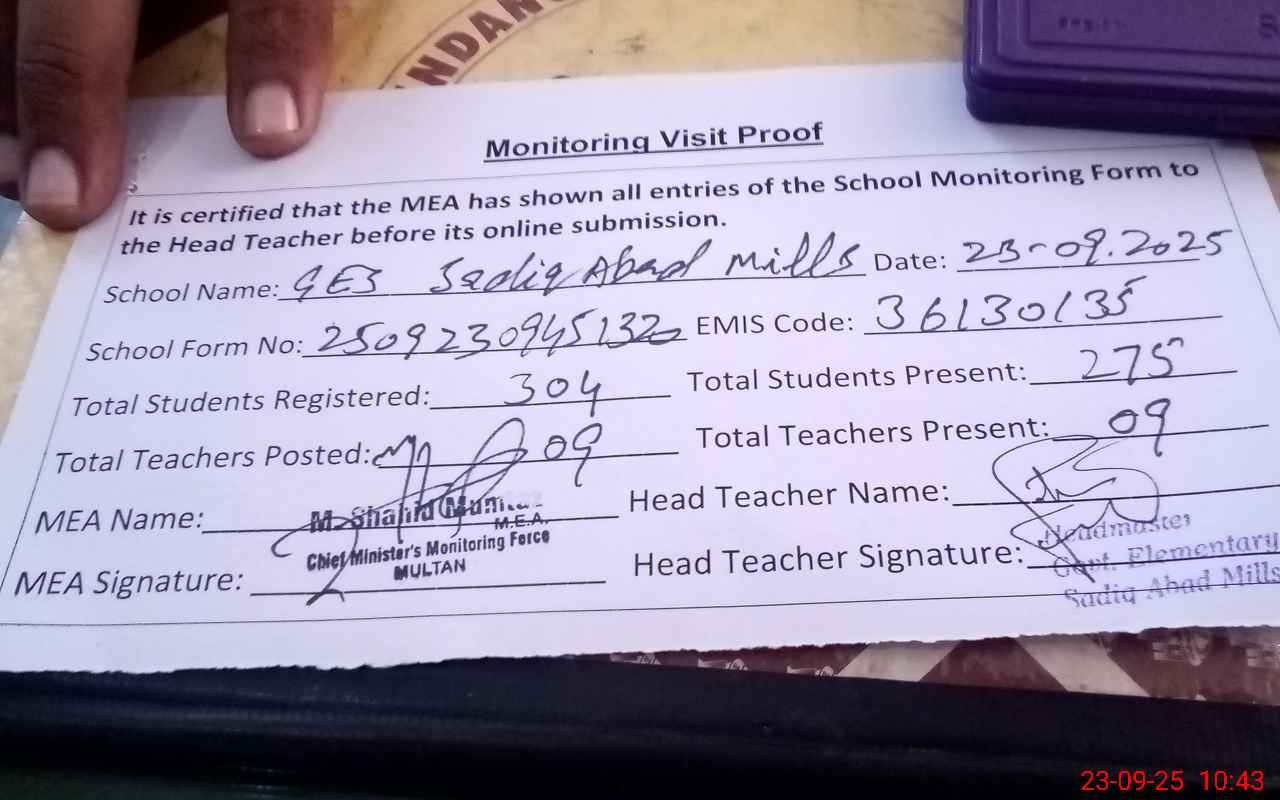 NDAN
Monitoring Visit Proof
It is certified that the MEA has shown all entries of the School Monitoring Form to
the Head Teacher before its online submission.
School Name: GES Sadiq Abad Mills Date: 23-09.2025
School Form No: 2509230945132 EMIS Code: 36130135
Total Students Registered: 304 Total Students Present: 275
Total Teachers Posted: 09 Total Teachers Present: 09
MEA Name: M. Shahid Mumtaz Head Teacher Name:
M.E.A.
Chief Minister's Monitoring Force
MULTAN
MEA Signature: Head Teacher Signature:
Headmaster
Govt. Elementary
Sadiq Abad Mills
23-09-25 10:43